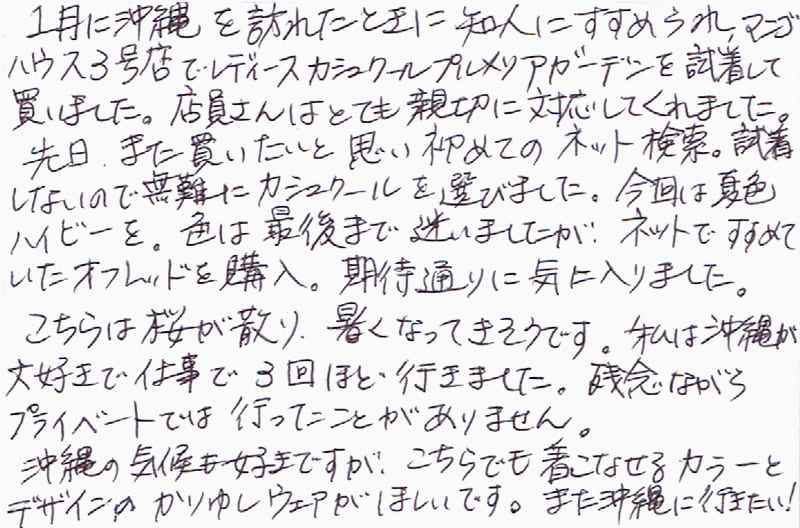 1月に沖縄を訪れたときに知人にすすめられ、マンゴ
ハウス3号店でレディースカシュクールプルメリアガーデンを試着して
買いました。店員さんはとても親切に対応してくれました。
先日、また買いたいと思い初めてのネット検索。試着
しないので無難にカシュクールを選びました。今回は夏色
ハイビーを。色は最後まで迷いましたが、ネットですすめて
いたオフレッドを購入。期待通りに気に入りました。
こちらは桜が散り、暑くなってきそうです。私は沖縄が
大好きで仕事で3回ほど行きました。残念ながら
プライベートでは行ったことがありません。
沖縄の気候も好きですが、こちらでも着こなせるカラーと
デザインのかりゆしウェアがほしいです。また沖縄に行きたい!